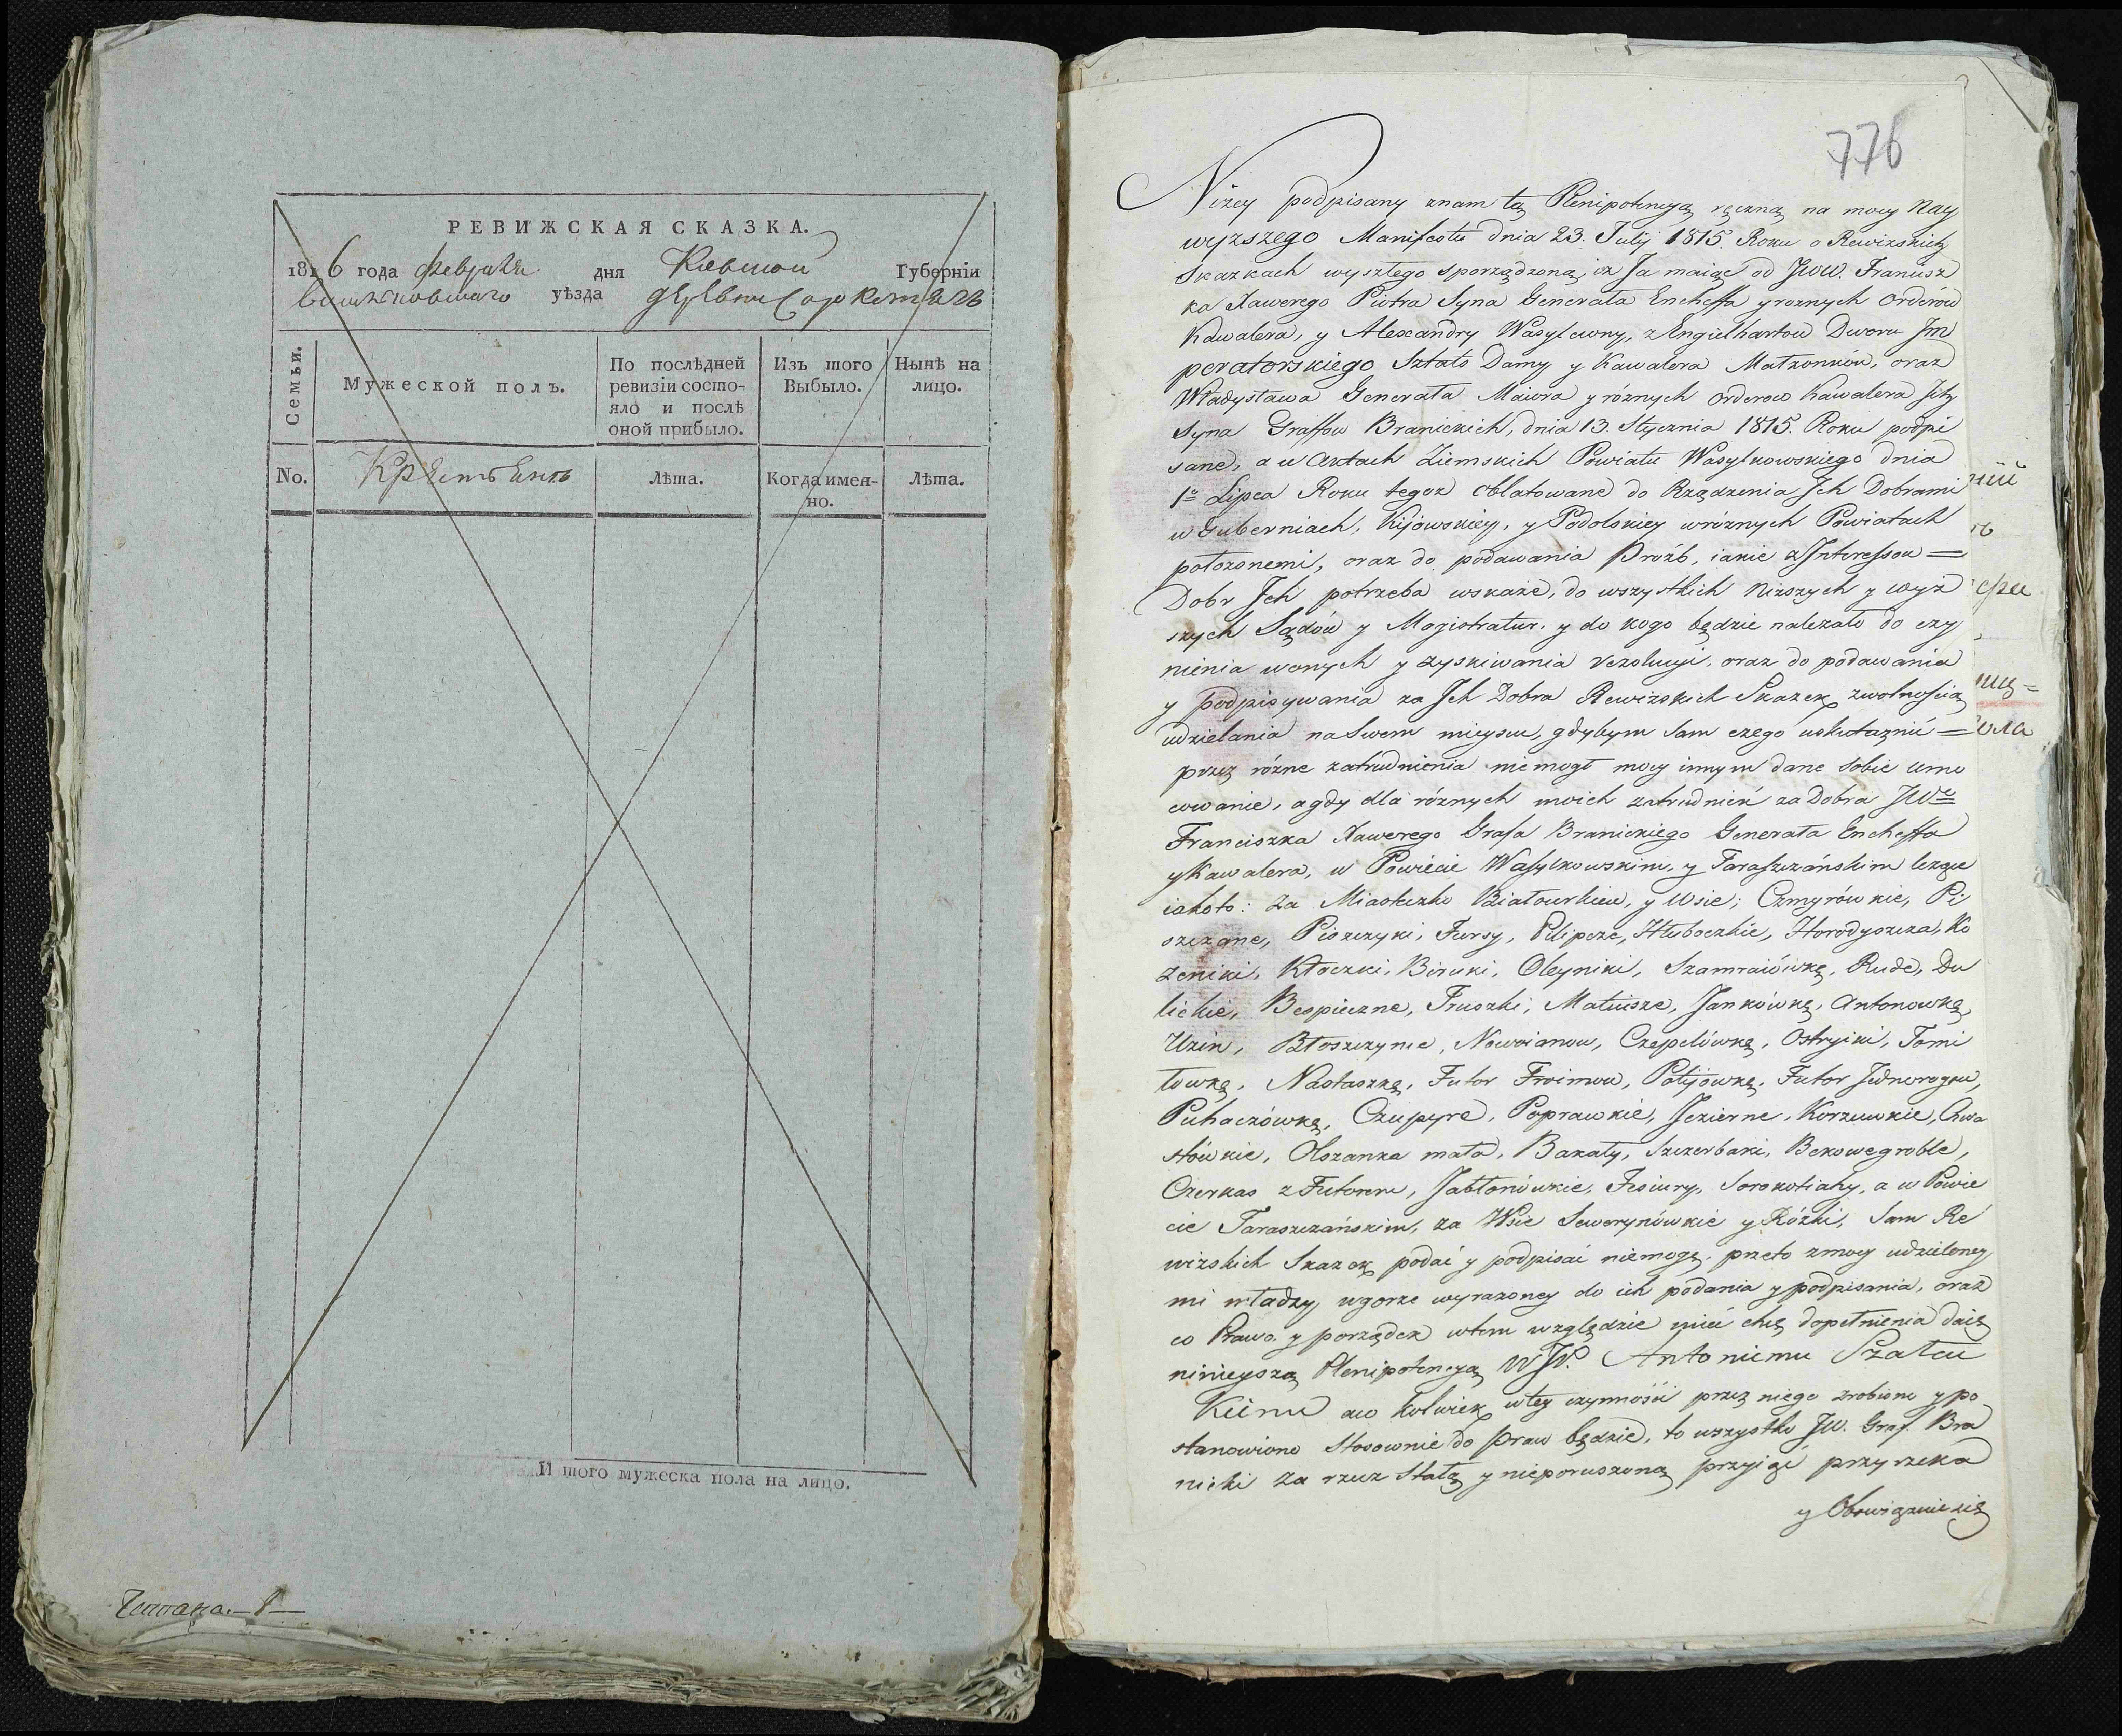 РЕВИЖСКАЯ СКАЗКА.
1816 года февраля дня Киевской Губернiи
васильковскаго уѣзда деревни Сорокотягъ
Семьи.
Мужеской полъ.
По послѣдней
ревизiи состо-
яло и послѣ
оной прибыло.
Изъ того
Выбыло.
Нынѣ на
лицо.
No.
Крестьянъ
Лѣта.
Когда имен-
но.
Лѣта.
И того мужеска пола на лицо.
776
Niżey podpisany znam tą Plenipotencyą ręczną na mocy Nay
wyższego Manifestu dnia 23. Julij 1815. Roku o Rewizskich
Skazkach wyszłego sporządzoną, iż Ja maiąc od JWW. Francisz
ka Xawerego Piotra Syna Generała Encheffa y roznych Orderów
Kawalera, y Alexandry Wasylewny, z Engielhartow Dworu Im
peratorskiego Sztats Damy y Kawalera Małżonków, oraz
Władysława Generała Maiora y róznych Orderow Kawalera Ich
Syna Graffow Branickich, dnia 13. Stycznia 1815. Roku podpi
sane, a w Aktach Ziemskich Powiatu Wasylkowskiego dnia
1o Lipca Roku tegoż oblatowane do Rządzenia Ich Dobrami
w Guberniach, Kijowskiey, y Podolskiey w róznych Powiatach
położonemi, oraz do podawania Proźb, iakie z Interessow =
Dobr Ich potrzeba wskaże, do wszystkich Niższych y wyż
szych Sądów y Magistratur. y do kogo będzie należało do czy
nienia w onych y zyskiwania rezolucyi, oraz do podawania
y podpisywania za Ich Dobra Rewizskich Skazek z wolnością
udzielania na Swem mieyscu, gdybym sam czego uskutecznić =
przez różne zatrudnienia niemogł mocy innym dane sobie umo
cowanie, a gdy dla róznych moich zatrudnień za Dobra JWo
Franciszka Xawerego Grafa Branickiego Generała Encheffa
y Kawalera, w Powiecie Wasylkowskim, y Taraszczańskim leżące
iakoto: za Miasteczko Białocerkiew, y Wsie; Czmyrówkie, Pi
szczane, Piszczyki, Fursy, Pilipcze, Hłuboczkie, Horodyszcza, Ko
żeniki, Kłoczki, Biruki, Oleyniki, Szamraiówkę, Rude, Du
lickie, Bespieczne, Truszki, Matiusze, Jankówkę, Antonowkę,
Uzin, Błoszczynie, Czepelówkę, Ostryiki, Tomi
łowkę, Nastaszkę, Futor Polijowkę, Futor
Puhaczówkę, Czupyre, Poprawkie, Jezierne, Korzuwkie, Chwa
stówkie, Olszanka mała, Bakały, Szczerbaki, Bekowegroble,
Czerkas z Futorem, Jabłonówkie, Fisiury, Sorokotiahy, a w Powie
cie Taraszczańskim, za Wsie Sewerynówkie y Rózki, sam Re
wizskich Skazek podać y podpisać niemogę, przeto z mocy udzieloney
mi władzy wgorze wyrażoney do ich podania y podpisania, oraz
co Prawo y porządek wtem względzie mieć chcą dopełnienia daię
ninieyszą Plenipotencyą W JP. Antoniemu Szałac
Kiemu aco kolwiek wtey czynności przez niego zrobiono y po
stanowiono Stosownie do Praw będzie, to wszystko JW. Graf. Bra
nicki za rzecz Stałą y nieporuszoną przyiąć przyrzeka
y Obowiązuie się